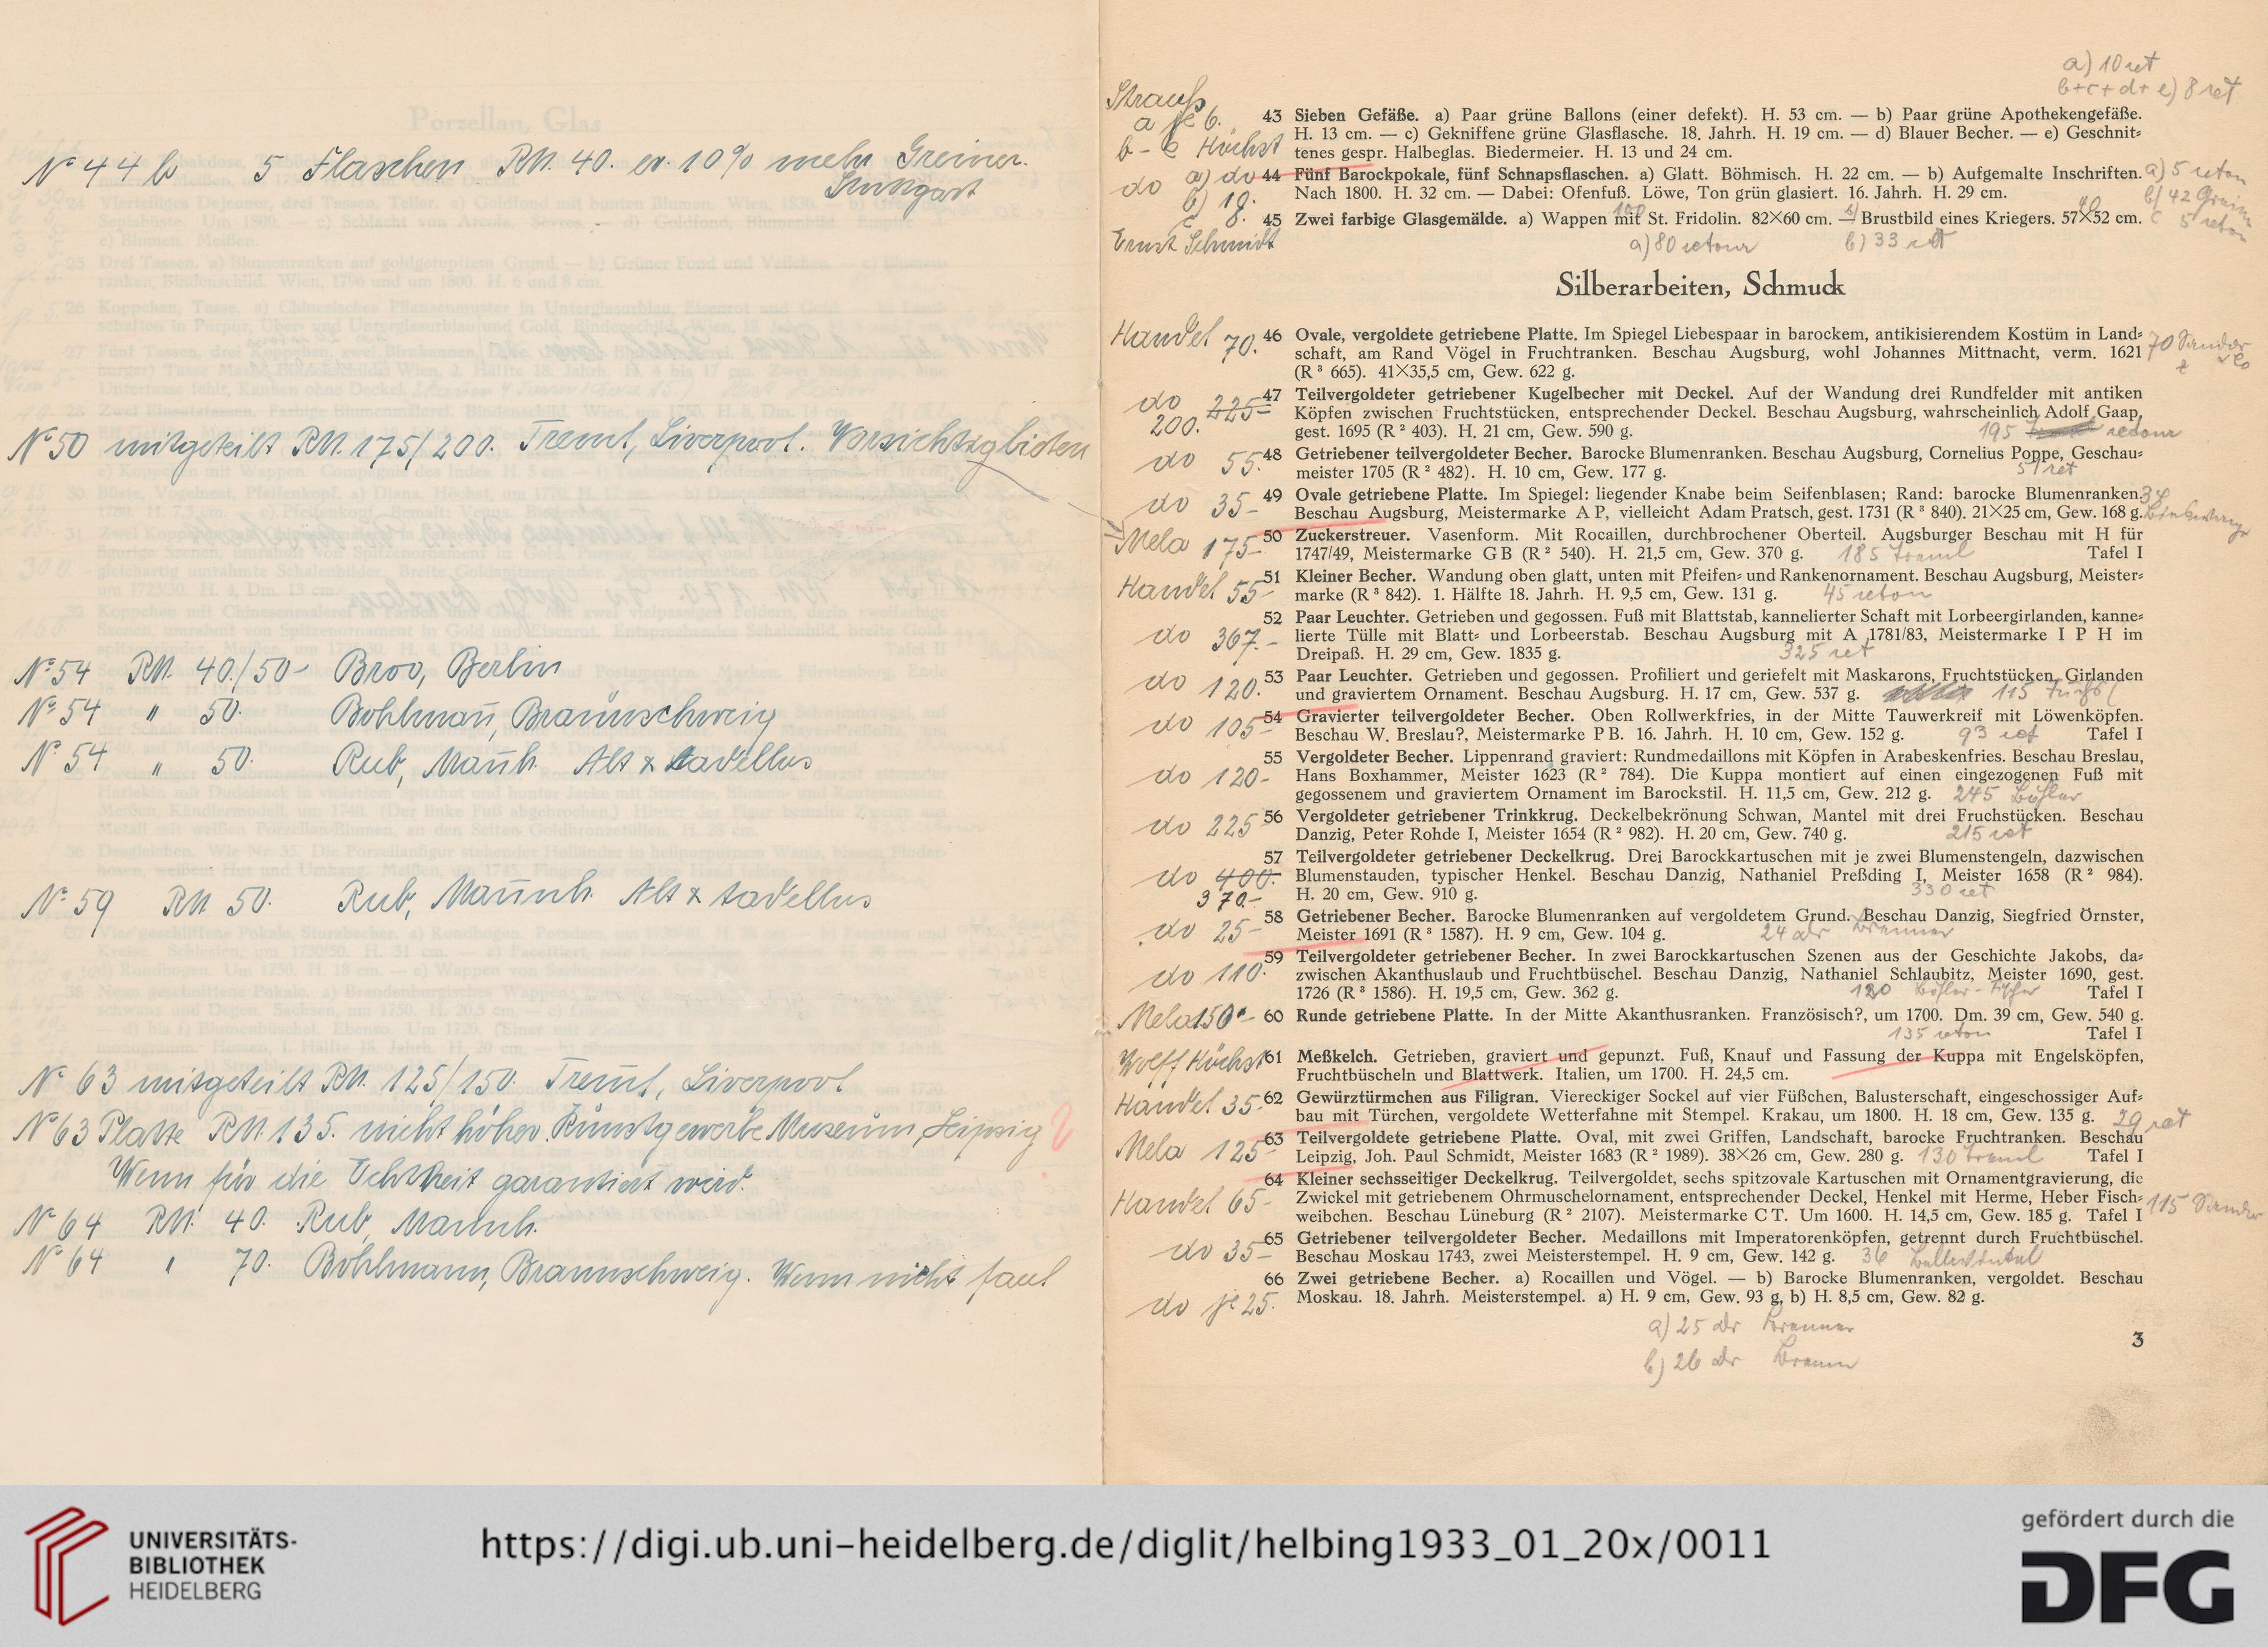 Nº 44 b 5 Flaschen RM. 40. ev. 10% mehr Greiner.
Stuttgart
Nº 50 mitgeteilt RM. 175/200. Treml, Liverpool. Vorsichtig bieten
Nº 54 RM. 40./50- Brov, Berlin
Nº 54 " 50. Bohlmann, Braunschweig
Nº 54 " 50. Rub, Mannh. Alt &
Nº 59 RM 50. Rub, Mannh. Alt &
Nº 63 mitgeteilt RM. 125/150. Treml, Liverpool
Nº 63 Platte RM. 135. nicht höher. Kunstgewerbe Museum, Leipzig ?
Wenn für die Echtheit garantiert wird.
Nº 64 RM. 40. Rub, Mannh.
Nº 64 " 70. Bohlmann, Braunschweig. Wenn nicht faul
a) 10 ret
b+c+d+e) 8 ret
Strauß
a je 6.
43 Sieben Gefäße. a) Paar grüne Ballons (einer defekt). H. 53 cm. — b) Paar grüne Apothekengefäße.
H. 13 cm. — c) Gekniffene grüne Glasflasche. 18. Jahrh. H. 19 cm. — d) Blauer Becher. — e) Geschnit=
b - e Höchst tenes gespr. Halbeglas. Biedermeier. H. 13 und 24 cm.
do a) do 44 Fünf Barockpokale, fünf Schnapsflaschen. a) Glatt. Böhmisch. H. 22 cm. — b) Aufgemalte Inschriften. a) 5 retour
b) 18. Nach 1800. H. 32 cm. — Dabei: Ofenfuß. Löwe, Ton grün glasiert. 16. Jahrh. H. 29 cm. b) 42 Greiner
c 8. 45 Zwei farbige Glasgemälde. a) Wappen mit St. Fridolin. 82×60 cm. — Brustbild eines Kriegers. 57×52 cm. c 5 retour
Ernst Schmidt a) 80 retour b) 33 ret
Silberarbeiten, Schmuck
Handel 70. 46 Ovale, vergoldete getriebene Platte. Im Spiegel Liebespaar in barockem, antikisierendem Kostüm in Land=
schaft, am Rand Vögel in Fruchtranken. Beschau Augsburg, wohl Johannes Mittnacht, verm. 1621 70
(R³ 665). 41×35,5 cm, Gew. 622 g.
do 225- 47 Teilvergoldeter getriebener Kugelbecher mit Deckel. Auf der Wandung drei Rundfelder mit antiken
Köpfen zwischen Fruchtstücken, entsprechender Deckel. Beschau Augsburg, wahrscheinlich Adolf Gaap,
200. gest. 1695 (R² 403). H. 21 cm, Gew. 590 g. 195 retour
do 55. 48 Getriebener teilvergoldeter Becher. Barocke Blumenranken. Beschau Augsburg, Cornelius Poppe, Geschau=
meister 1705 (R² 482). H. 10 cm, Gew. 177 g. 51 ret
do 35- 49 Ovale getriebene Platte. Im Spiegel: liegender Knabe beim Seifenblasen; Rand: barocke Blumenranken. 34
Beschau Augsburg, Meistermarke A P, vielleicht Adam Pratsch, gest. 1731 (R³ 840). 21×25 cm, Gew. 168 g.
Mela 175- 50 Zuckerstreuer. Vasenform. Mit Rocaillen, durchbrochener Oberteil. Augsburger Beschau mit H für
1747/49, Meistermarke G B (R² 540). H. 21,5 cm, Gew. 370 g. 185 Treml Tafel I
Handel 55- 51 Kleiner Becher. Wandung oben glatt, unten mit Pfeifen= und Rankenornament. Beschau Augsburg, Meister=
marke (R³ 842). 1. Hälfte 18. Jahrh. H. 9,5 cm, Gew. 131 g. 45 retour
52 Paar Leuchter. Getrieben und gegossen. Fuß mit Blattstab, kannelierter Schaft mit Lorbeergirlanden, kanne=
do 367.- lierte Tülle mit Blatt= und Lorbeerstab. Beschau Augsburg mit A 1781/83, Meistermarke I P H im
Dreipaß. H. 29 cm, Gew. 1835 g. 325 ret
do 120. 53 Paar Leuchter. Getrieben und gegossen. Profiliert und geriefelt mit Maskarons, Fruchtstücken, Girlanden
und graviertem Ornament. Beschau Augsburg. H. 17 cm, Gew. 537 g. 115
do 105- 54 Gravierter teilvergoldeter Becher. Oben Rollwerkfries, in der Mitte Tauwerkreif mit Löwenköpfen.
Beschau W. Breslau?, Meistermarke P B. 16. Jahrh. H. 10 cm, Gew. 152 g. 93 ret Tafel I
55 Vergoldeter Becher. Lippenrand graviert: Rundmedaillons mit Köpfen in Arabeskenfries. Beschau Breslau,
do 120- Hans Boxhammer, Meister 1623 (R² 784). Die Kuppa montiert auf einen eingezogenen Fuß mit
gegossenem und graviertem Ornament im Barockstil. H. 11,5 cm, Gew. 212 g. 245 Böhler
do 225 56 Vergoldeter getriebener Trinkkrug. Deckelbekrönung Schwan, Mantel mit drei Fruchstücken. Beschau
Danzig, Peter Rohde I, Meister 1654 (R² 982). H. 20 cm, Gew. 740 g. 215 ret
57 Teilvergoldeter getriebener Deckelkrug. Drei Barockkartuschen mit je zwei Blumenstengeln, dazwischen
do 400. Blumenstauden, typischer Henkel. Beschau Danzig, Nathaniel Preßding I, Meister 1658 (R² 984).
370.- H. 20 cm, Gew. 910 g. 330 ret
do 25- 58 Getriebener Becher. Barocke Blumenranken auf vergoldetem Grund. Beschau Danzig, Siegfried Örnster,
Meister 1691 (R³ 1587). H. 9 cm, Gew. 104 g. 24 dr Brenner
59 Teilvergoldeter getriebener Becher. In zwei Barockkartuschen Szenen aus der Geschichte Jakobs, da=
do 110. zwischen Akanthuslaub und Fruchtbüschel. Beschau Danzig, Nathaniel Schlaubitz, Meister 1690, gest.
1726 (R³ 1586). H. 19,5 cm, Gew. 362 g. 120 Böhler Tafel I
Mela 150.- 60 Runde getriebene Platte. In der Mitte Akanthusranken. Französisch?, um 1700. Dm. 39 cm, Gew. 540 g.
135 retour Tafel I
Wolff Höchst 61 Meßkelch. Getrieben, graviert und gepunzt. Fuß, Knauf und Fassung der Kuppa mit Engelsköpfen,
Fruchtbüscheln und Blattwerk. Italien, um 1700. H. 24,5 cm.
Handel 35. 62 Gewürztürmchen aus Filigran. Viereckiger Sockel auf vier Füßchen, Balusterschaft, eingeschossiger Auf=
bau mit Türchen, vergoldete Wetterfahne mit Stempel. Krakau, um 1800. H. 18 cm, Gew. 135 g. 29 ret
Mela 125- 63 Teilvergoldete getriebene Platte. Oval, mit zwei Griffen, Landschaft, barocke Fruchtranken. Beschau
Leipzig, Joh. Paul Schmidt, Meister 1683 (R² 1989). 38×26 cm, Gew. 280 g. 130 Treml Tafel I
64 Kleiner sechsseitiger Deckelkrug. Teilvergoldet, sechs spitzovale Kartuschen mit Ornamentgravierung, die
Handel 65- Zwickel mit getriebenem Ohrmuschelornament, entsprechender Deckel, Henkel mit Herme, Heber Fisch=
weibchen. Beschau Lüneburg (R² 2107). Meistermarke C T. Um 1600. H. 14,5 cm, Gew. 185 g. Tafel I 115
do 35- 65 Getriebener teilvergoldeter Becher. Medaillons mit Imperatorenköpfen, getrennt durch Fruchtbüschel.
Beschau Moskau 1743, zwei Meisterstempel. H. 9 cm, Gew. 142 g. 36
66 Zwei getriebene Becher. a) Rocaillen und Vögel. — b) Barocke Blumenranken, vergoldet. Beschau
do je 25. Moskau. 18. Jahrh. Meisterstempel. a) H. 9 cm, Gew. 93 g, b) H. 8,5 cm, Gew. 82 g.
a) 25 dr Brenner
b) 26 dr
3
UNIVERSITÄTS-
BIBLIOTHEK
HEIDELBERG
https://digi.ub.uni-heidelberg.de/diglit/helbing1933_01_20x/0011
gefördert durch die
DFG